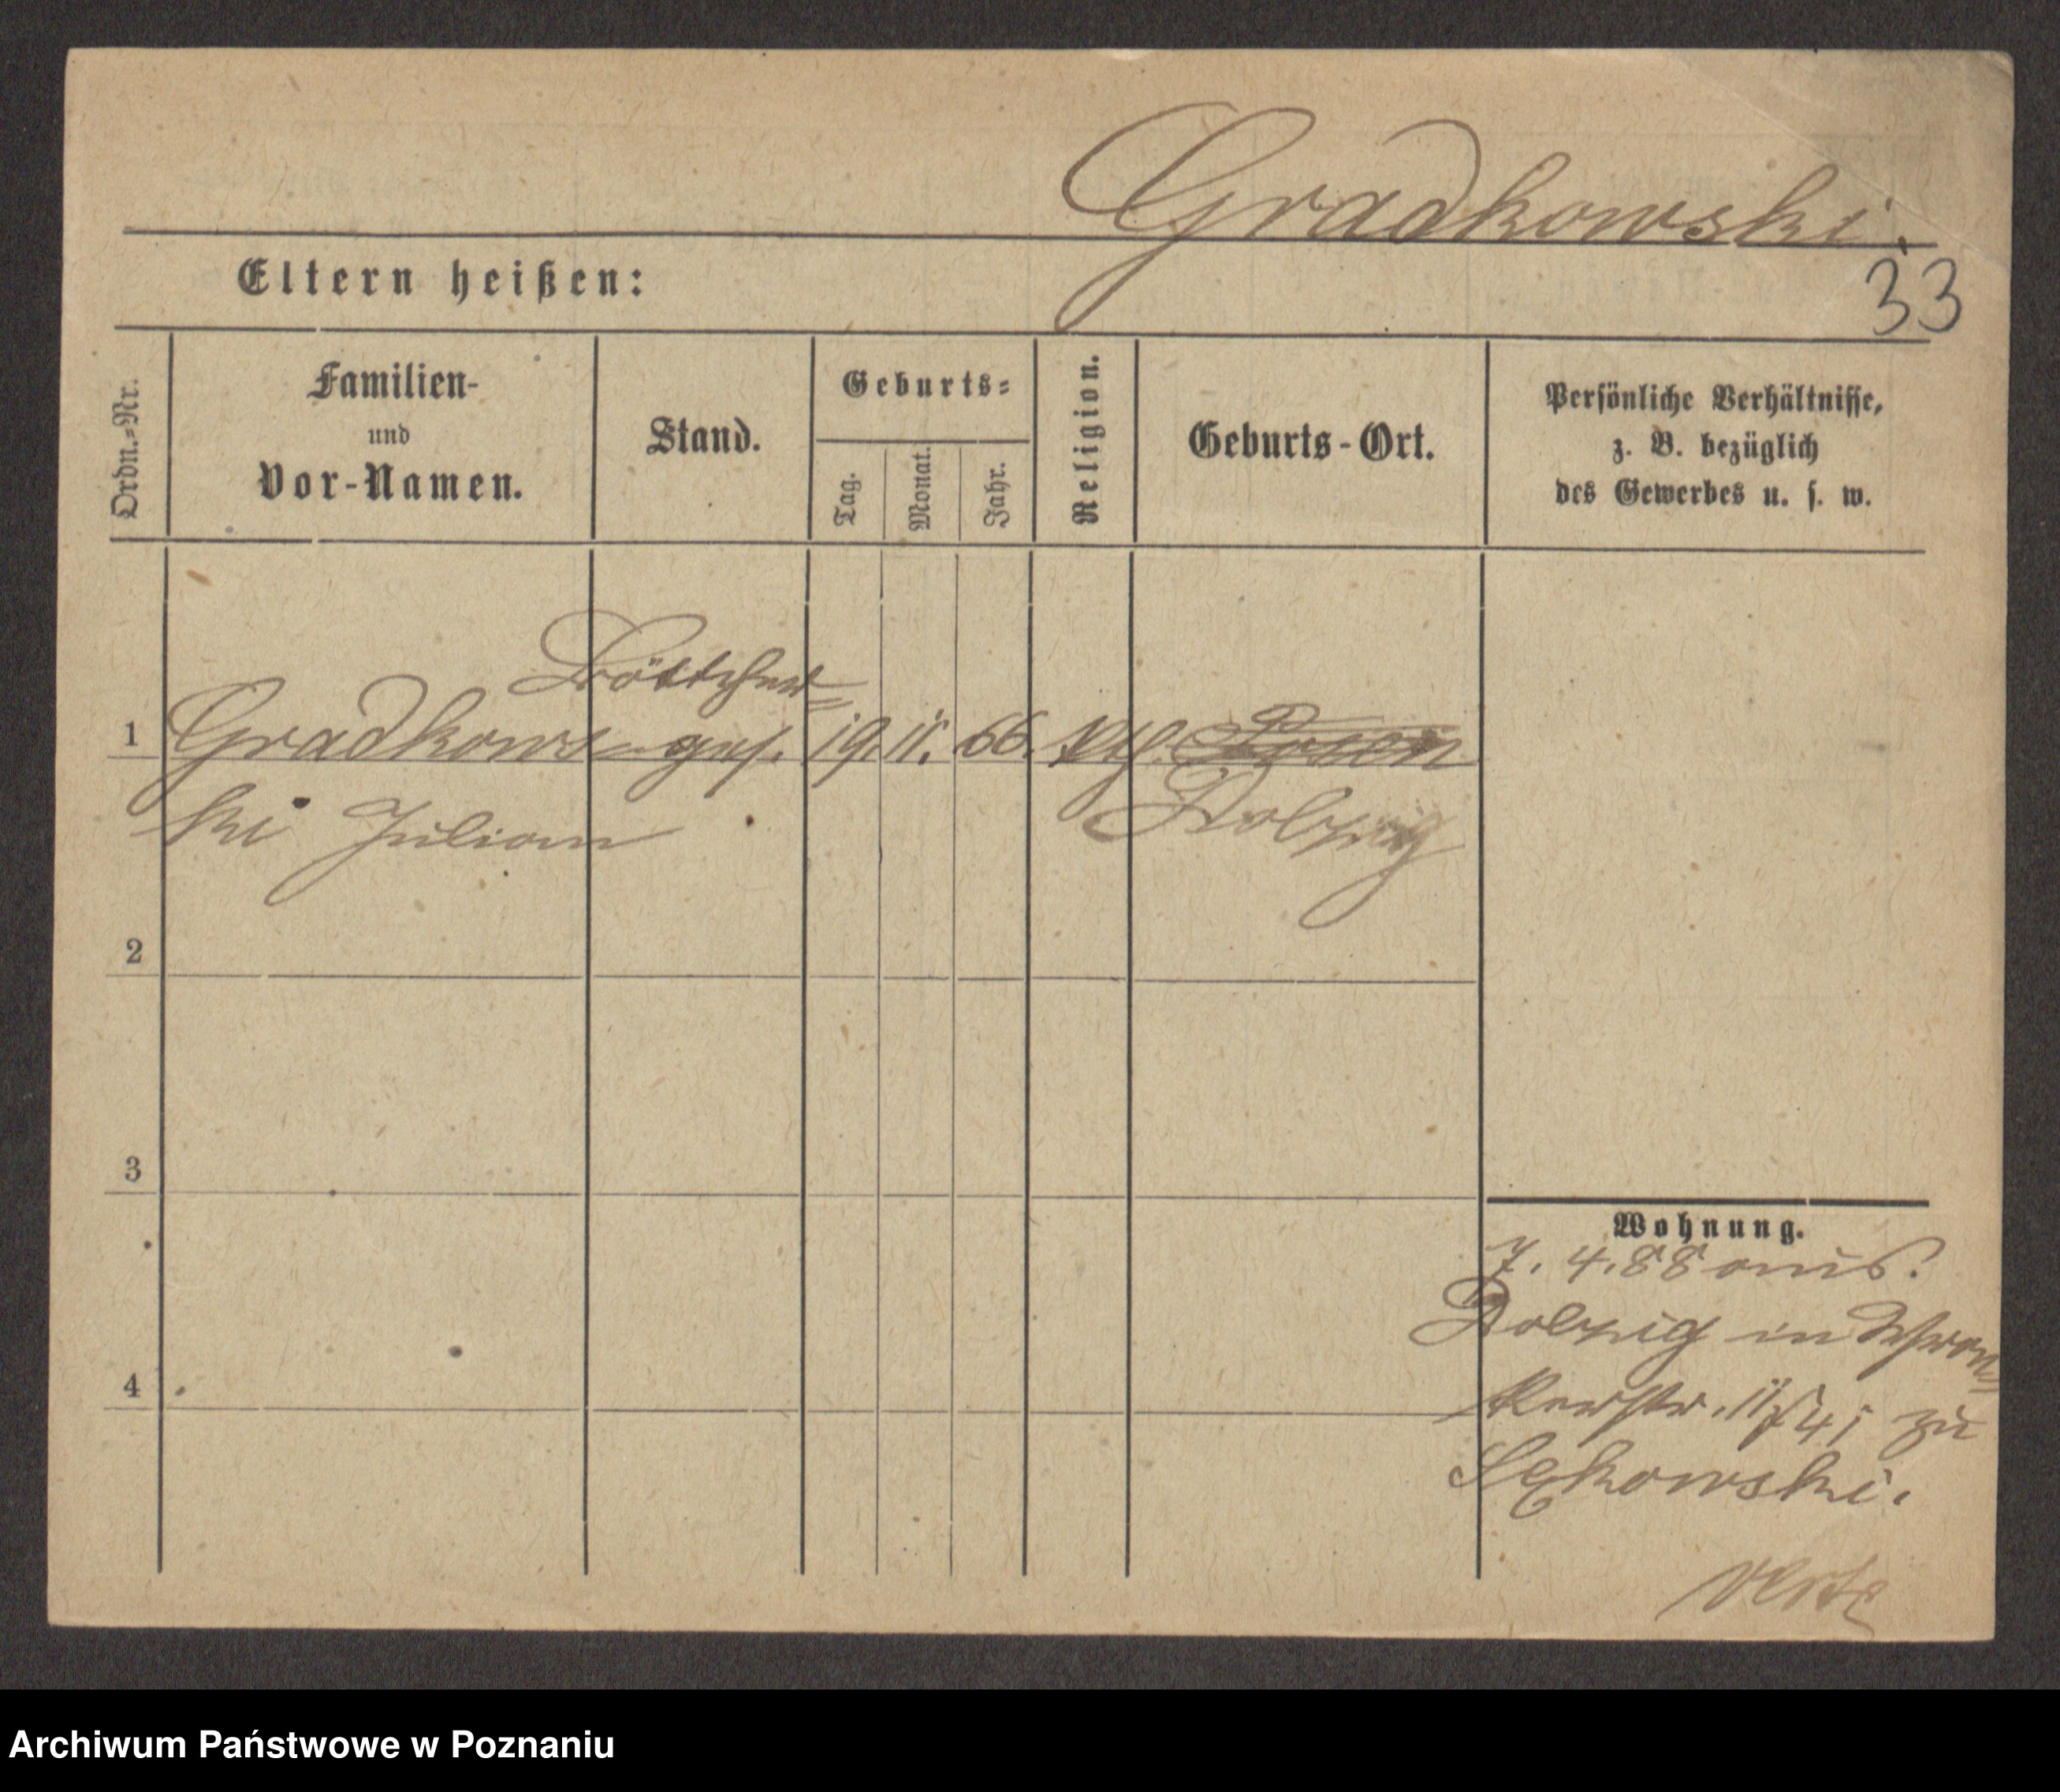 Gradkowski.
33
Eltern heißen:
Ordn.-Nr.
Familien-
und
Vor-Namen.
Stand.
Geburts-
Tag.
Monat.
Jahr.
Religion.
Geburts-Ort.
Persönliche Verhältnisse,
z. B. bezüglich
des Gewerbes u. s. w.
Böttcher=
1 Gradkows- ges. 19. 11. 66. kth. Posen
ki Julian Dolzig
2
3
4
Wohnung.
7. 4. 88 aus
Dolzig in Wron=
kerstr. 11/41 zu
Sękowski.
verte
Archiwum Państwowe w Poznaniu